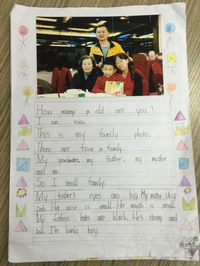 How many old are you?
I am nine.
This is my family photo.
There are four family.
My grandmother my father, my mother
and me.
So I small family.
My father's eyes are big. My mother
Her nose is small. Her mouth is small.
My father's hair are black. He's strong and
tall. I'm lovely boy.